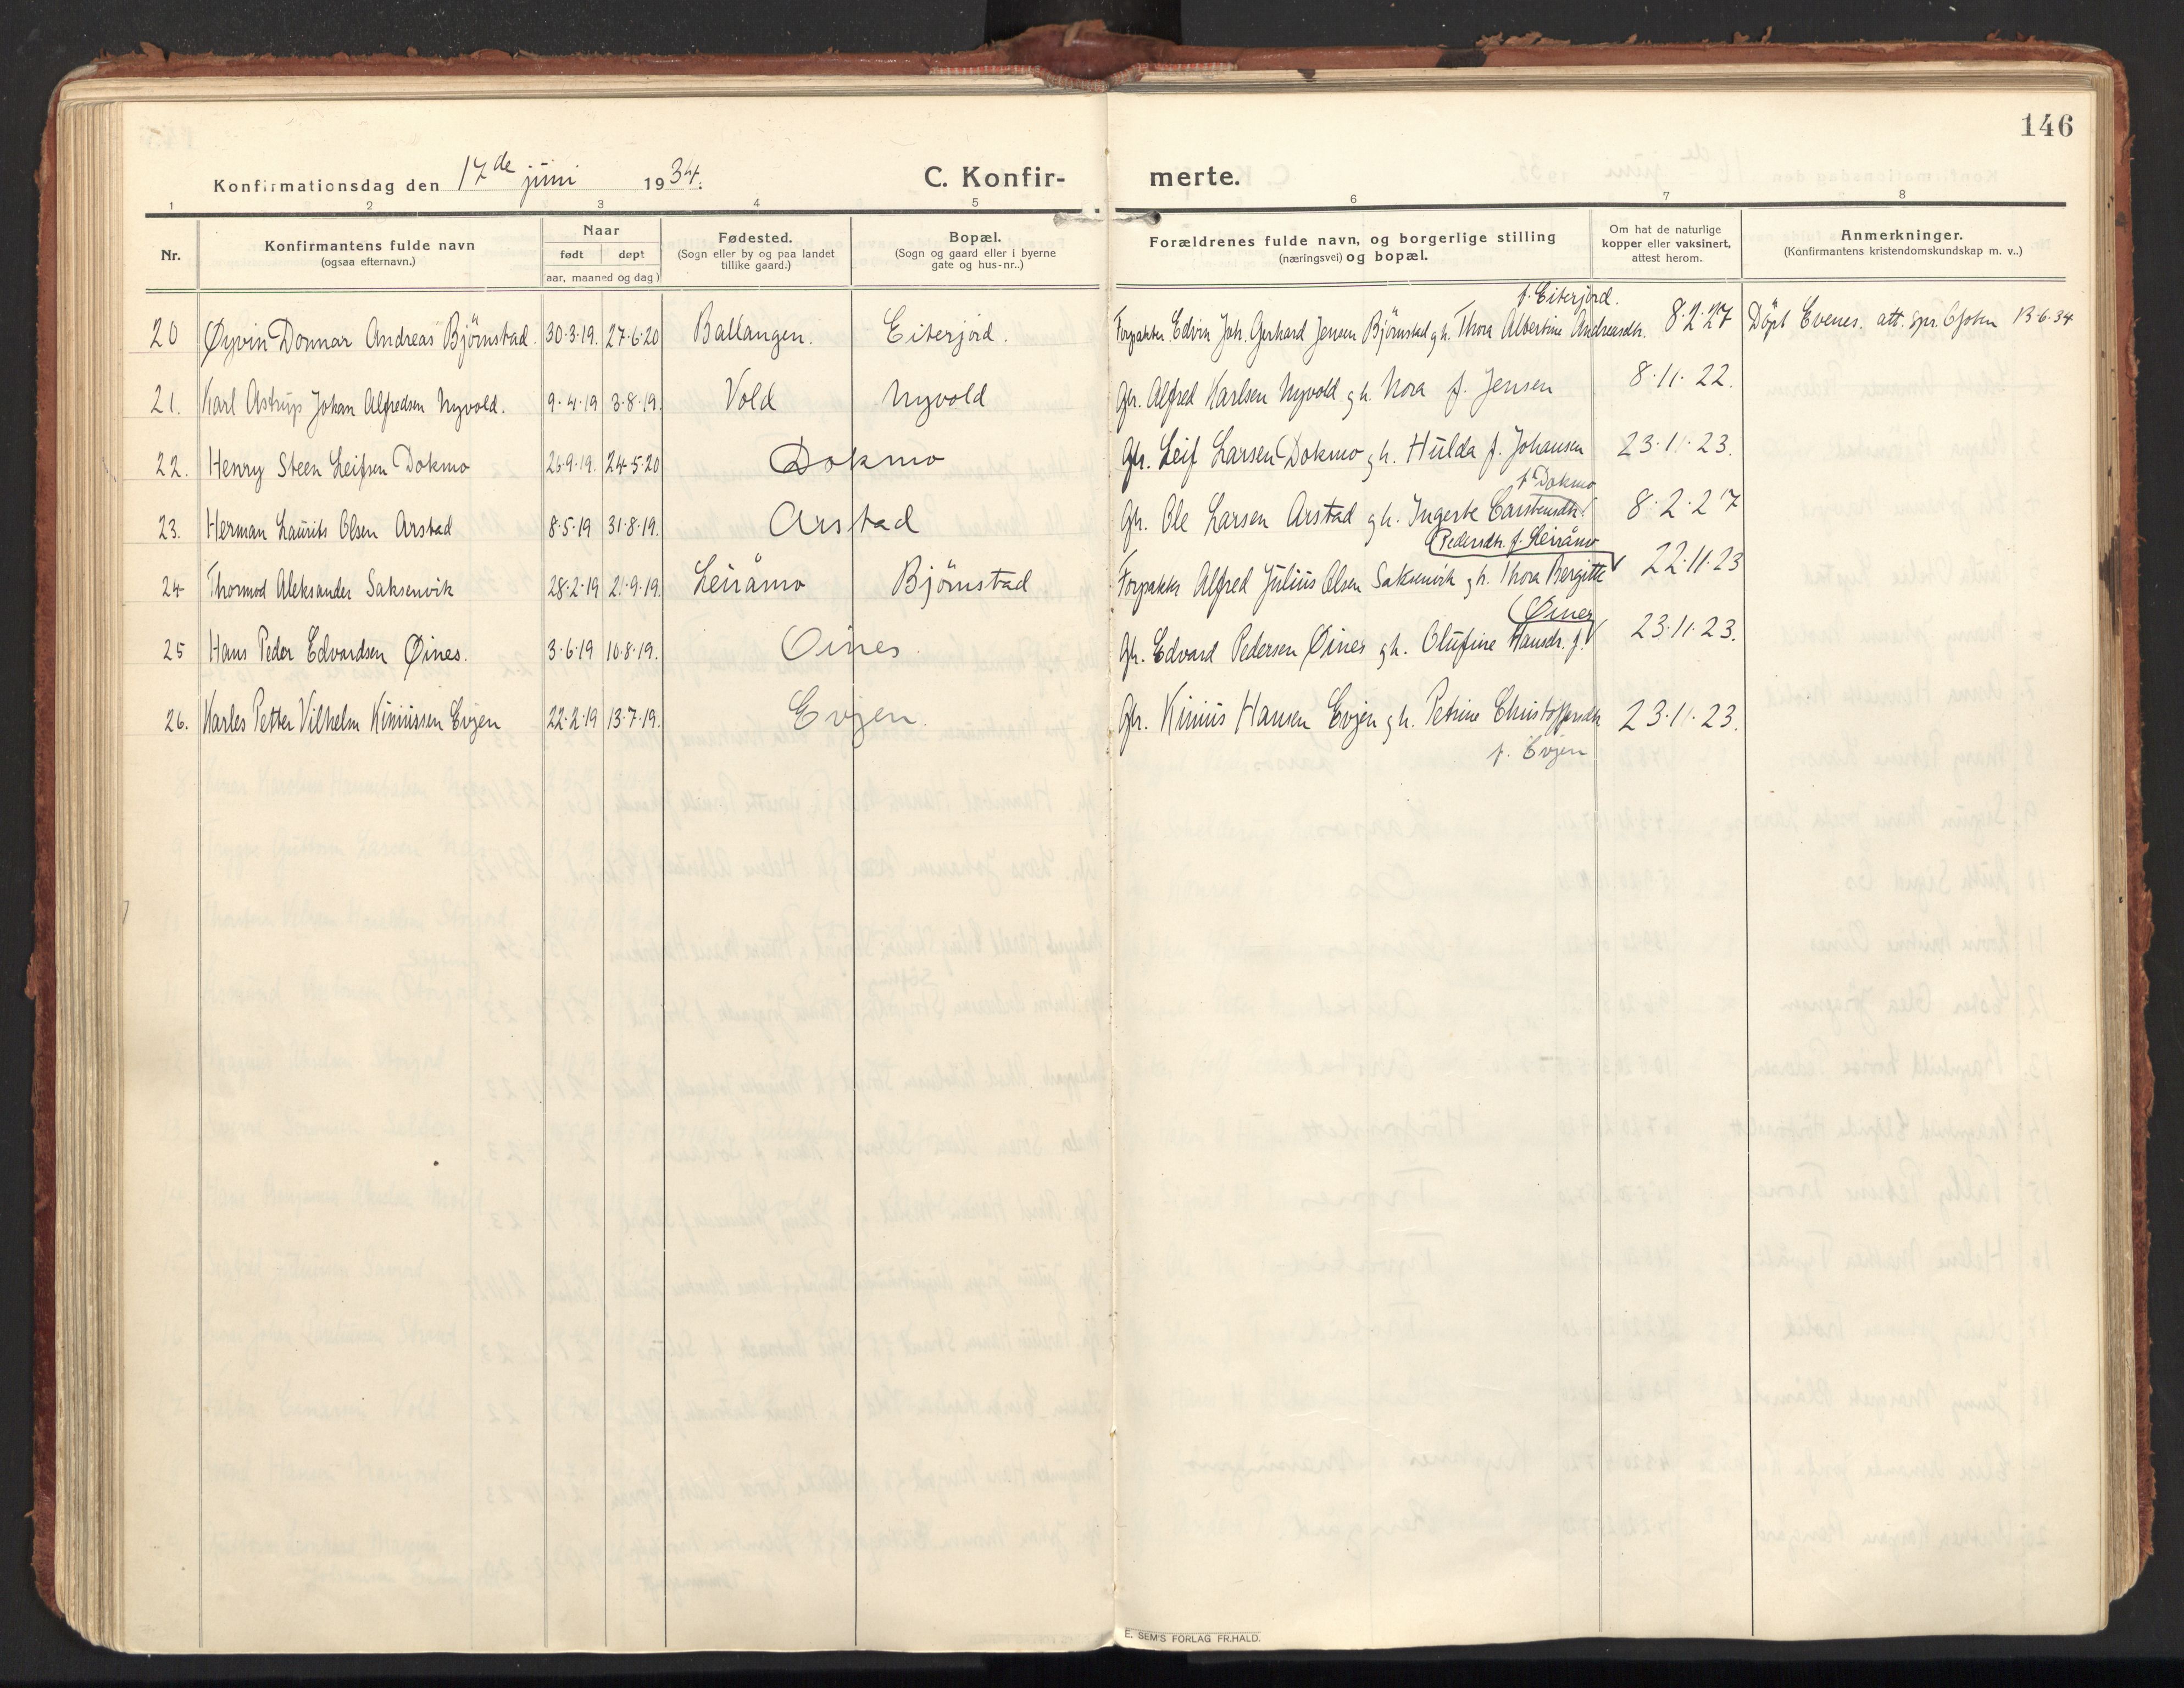 146
Konfirmationsdag den 17de juni 1934.
C. Konfir- merte.
1 2 3 4 5 6 7 8
Nr.
Konfirmantens fulde navn
(ogsaa efternavn.)
Naar
født døpt
(aar, maaned og dag)
Fødested.
(Sogn eller by og paa landet
tillike gaard.)
Bopæl.
(Sogn og gaard eller i byerne
gate og hus-nr..)
Forældrenes fulde navn, og borgerlige stilling
(næringsvei) og bopæl.
Om hat de naturlige
kopper eller vaksinert,
attest herom.
Anmerkninger.
(Konfirmantens kristendomskundskap m. v..)
f. Eiterjord.
20 Øyvin Donnar Andreas Björnstad. 30·3·19. 27·6·20 Ballangen. Eiterjord. Forpakter Edvin Joh. Gerhard Jensen Björnstad g h. Thora Albertine Andreasdtr. 8·2·27 Döpt Evenes. att. spr. 13·6·34
21. Karl Astrup Johan Alfredsen Nyvold. 9·4·19 3·8·19. Vold Nyvold Gbr. Alfred Karlsen Nyvold g h. Nora f. Jensen 8·11·22.
22. Henry Steen Leifsen Dokmo 26·9·19. 24·5·20 Dokmo Gbr. Leif Larsen Dokmo g h. Hulda f. Johansen 23·11·23.
f. Dokmo
23. Herman Laurits Olsen Arstad 8·5·19 31·8·19. Arstad Gbr. Ole Larsen Arstad g h. Ingerte Carstensdtr. 8·2·27
Pedersdtr. f. Leiråmo
24 Thormod Aleksander Saksenvik 28·2·19 21·9·19. Leiråmo Björnstad Forpakter Alfred Julius Olsen Saksenvik g h. Thora Bergitte 22·11·23
Øines
25 Hans Peder Edvardsen Øines. 3·6·19 10·8·19. Øines. Gbr. Edvard Pedersen Øines g h. Olufine Hansdr. f. 23·11·23.
26. Karles Petter Vilhelm Kiniussen Evjen 22·2·19 13·7·19. Evjen. Gbr. Kinius Hansen Evjen g h. Petrine Christoffersdtr 23·11·23.
f. Evjen
E. SEM'S FORLAG FR.HALD.